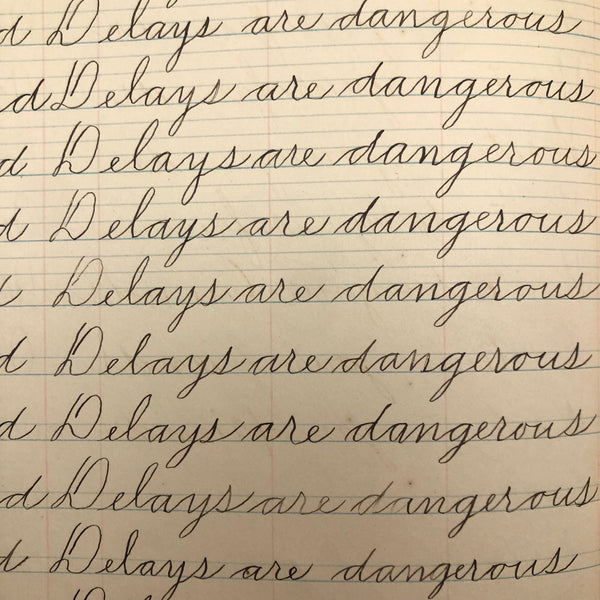 d Delays are dangerous
d Delays are dangerous
d Delays are dangerous
d Delays are dangerous
Delays are dangerous
d Delays are dangerous
d Delays are dangerous
d Delays are dangerous
d Delays are dangerous